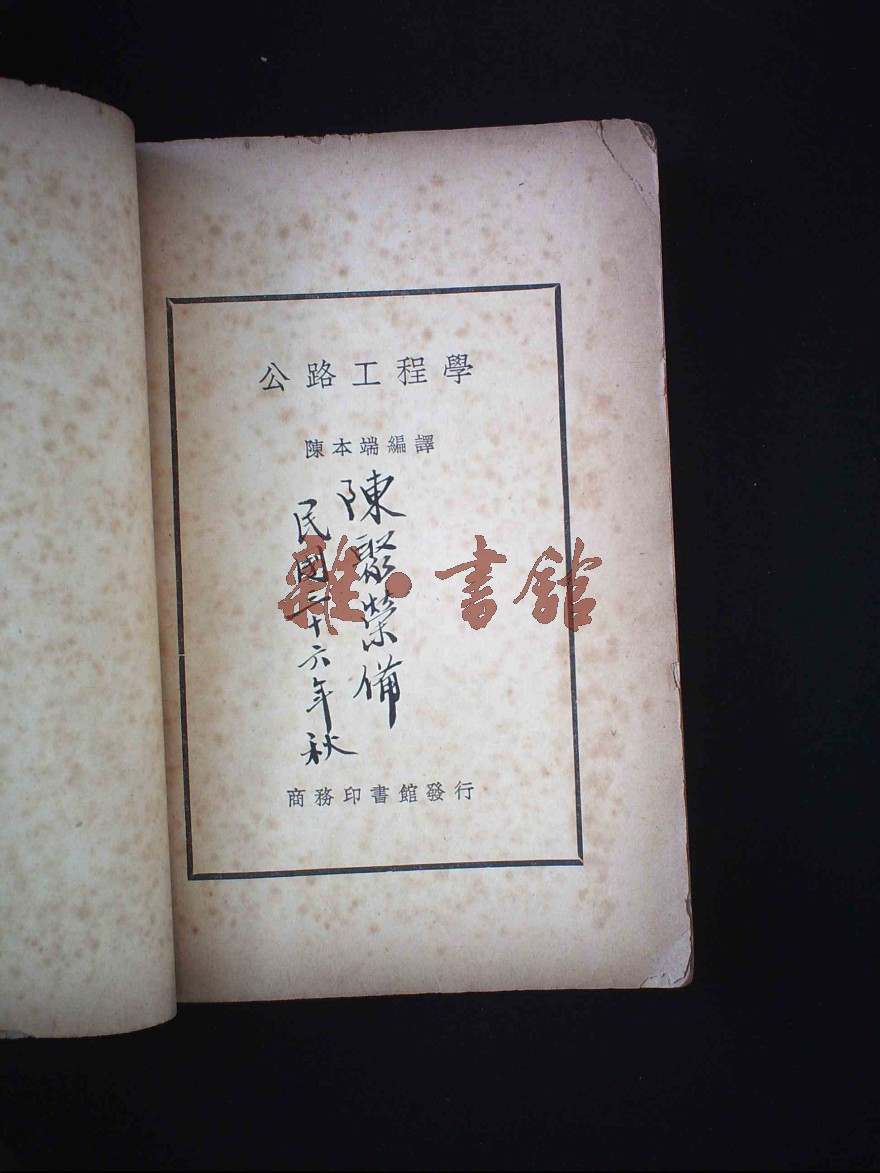 公路工程學
陳本端編譯
陳聚榮備
民國二十六年秋
雜·書館
商務印書館發行